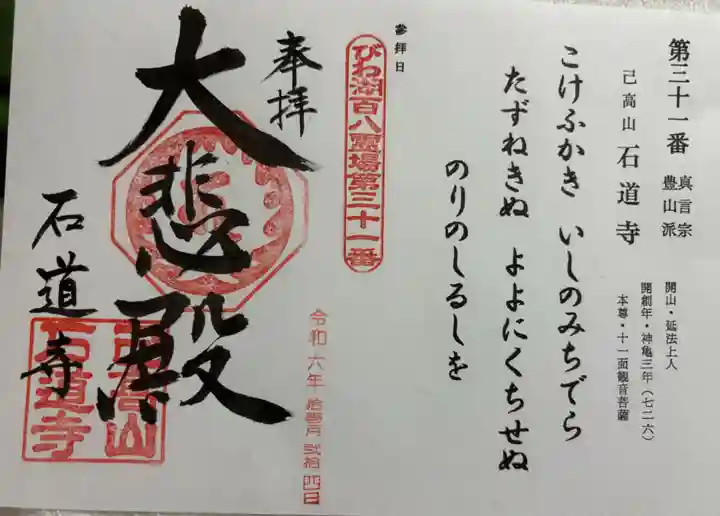 第三十一番
真言宗
豊山派
己高山 石道寺
開山・延法上人
開創年・神亀三年(七二六)
本尊・十一面観音菩薩
こけふかき いしのみちでら
たずねきぬ よよにくちせぬ
のりのしるしを
参拝日
びわ湖百八霊場第三十一番
奉拝
令和六年 拾壱月 弐拾四日
大悲殿
石道寺
己高山
石道寺